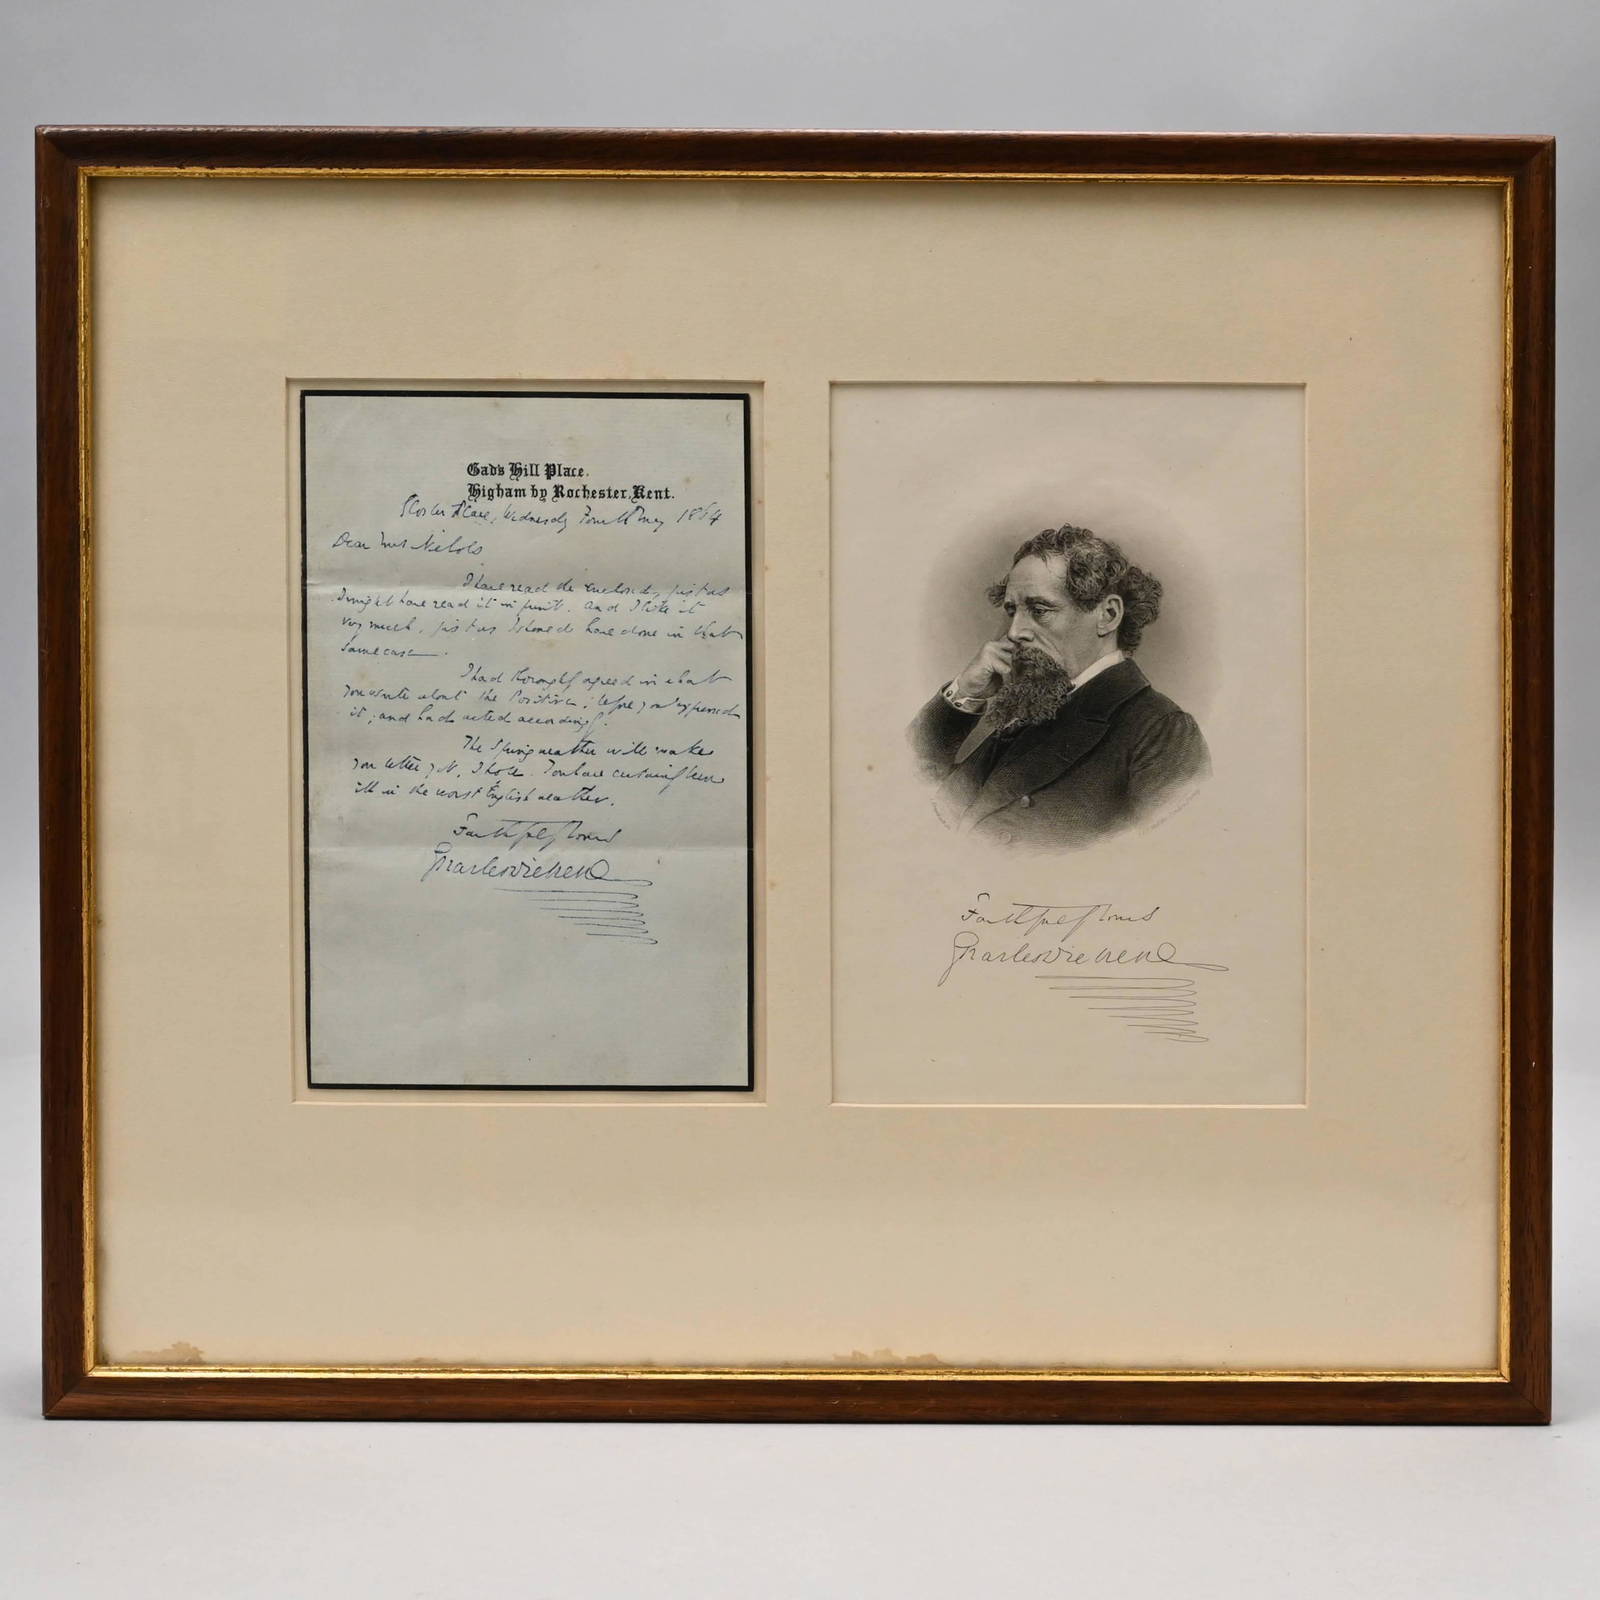 Gad's Hill Place.
Higham by Rochester, Kent.
Gloster Place, Wednesday Fourth May 1864
Dear Mrs Nichols
I have read the enclosed, just as
I might have read it in print. And I like it
very much, just as I should have done in that
same case.
I had thoroughly agreed in what
you write about the Positive; before you expressed
it; and had acted accordingly.
The Spring weather will make
you better yet, I hope. You have certainly been
ill in the worst English weather.
Faithfully Yours
Charles Dickens
Faithfully Yours
Charles Dickens